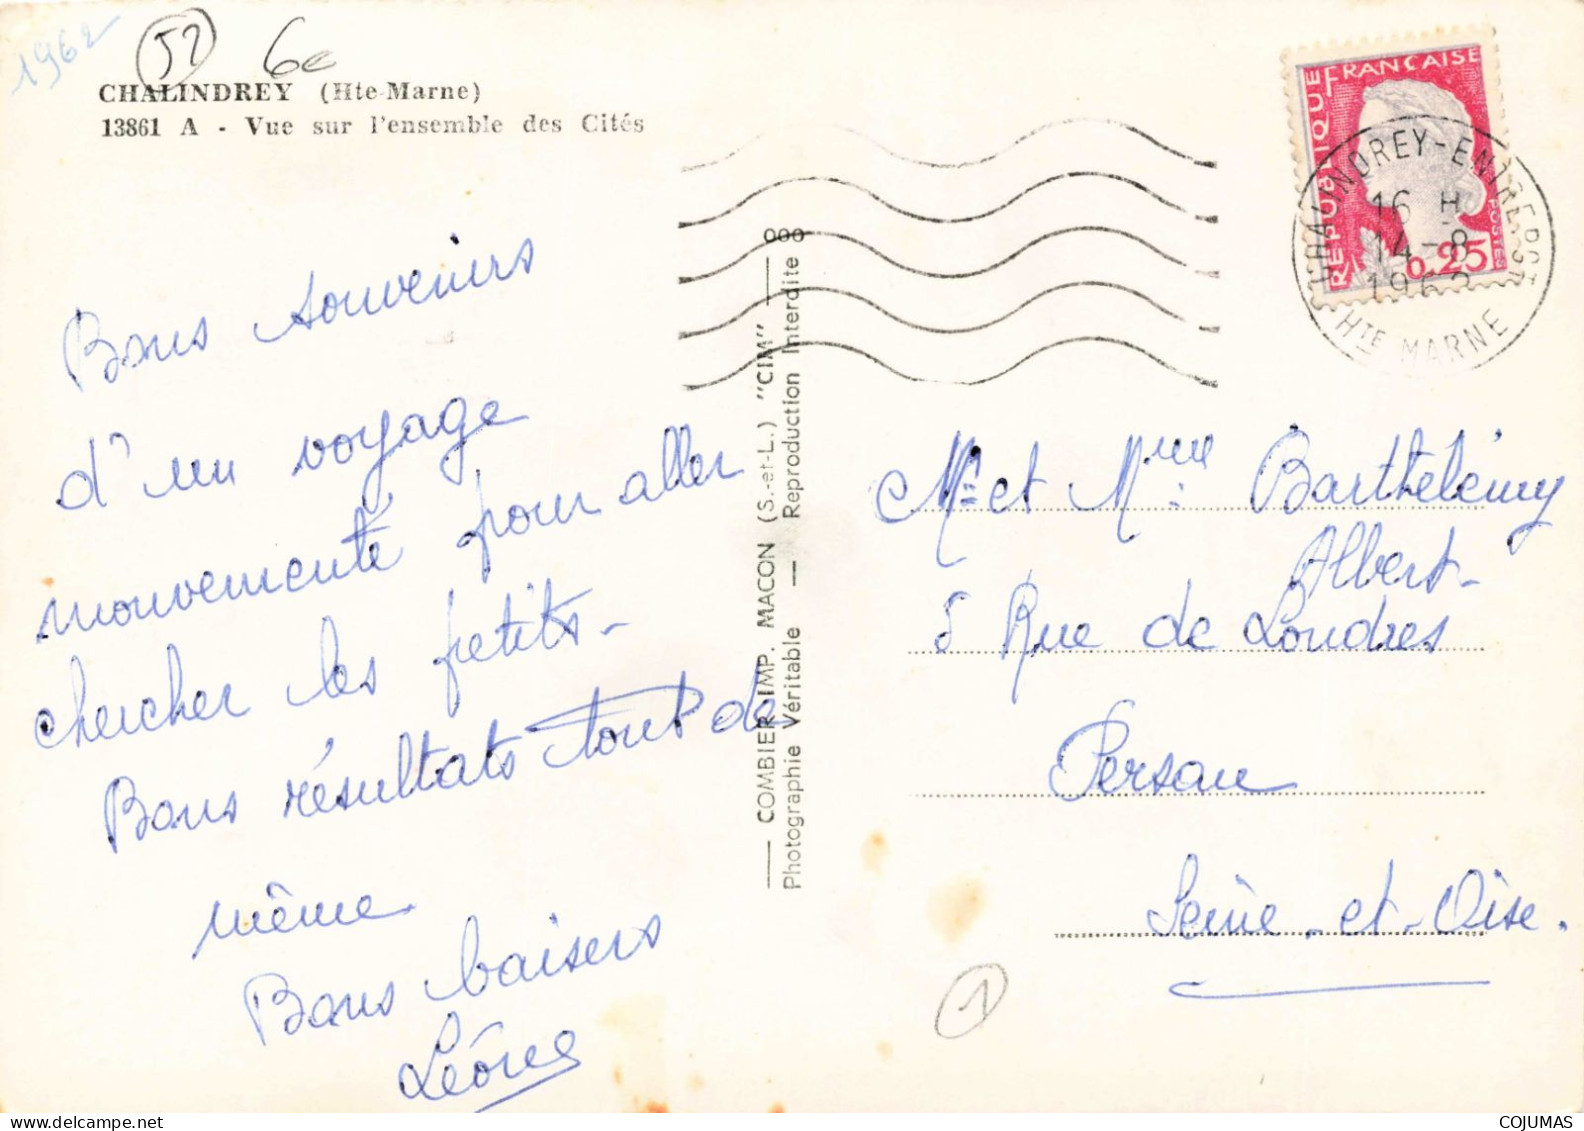 1962
52
6e
CHALINDREY (Hte-Marne)
13861 A - Vue sur l'ensemble des Cités
Bons souvenirs
d'un voyage
mouvementé pour aller
chercher les petits -
Bons résultats tout de
même
Bons baisers
COMBIER IMP. MACON (S.-et-L.) "CIM"
Photographie Véritable — Reproduction Interdite
REPUBLIQUE FRANÇAISE
POSTES
0,25
CHALINDREY-ENTREPOT
16 H
14-8
1962
HTE MARNE
Mr et Mme Barthelémy
Albert -
5 Rue de Londres
Persan
Seine-et-Oise.
1
COJUMAS